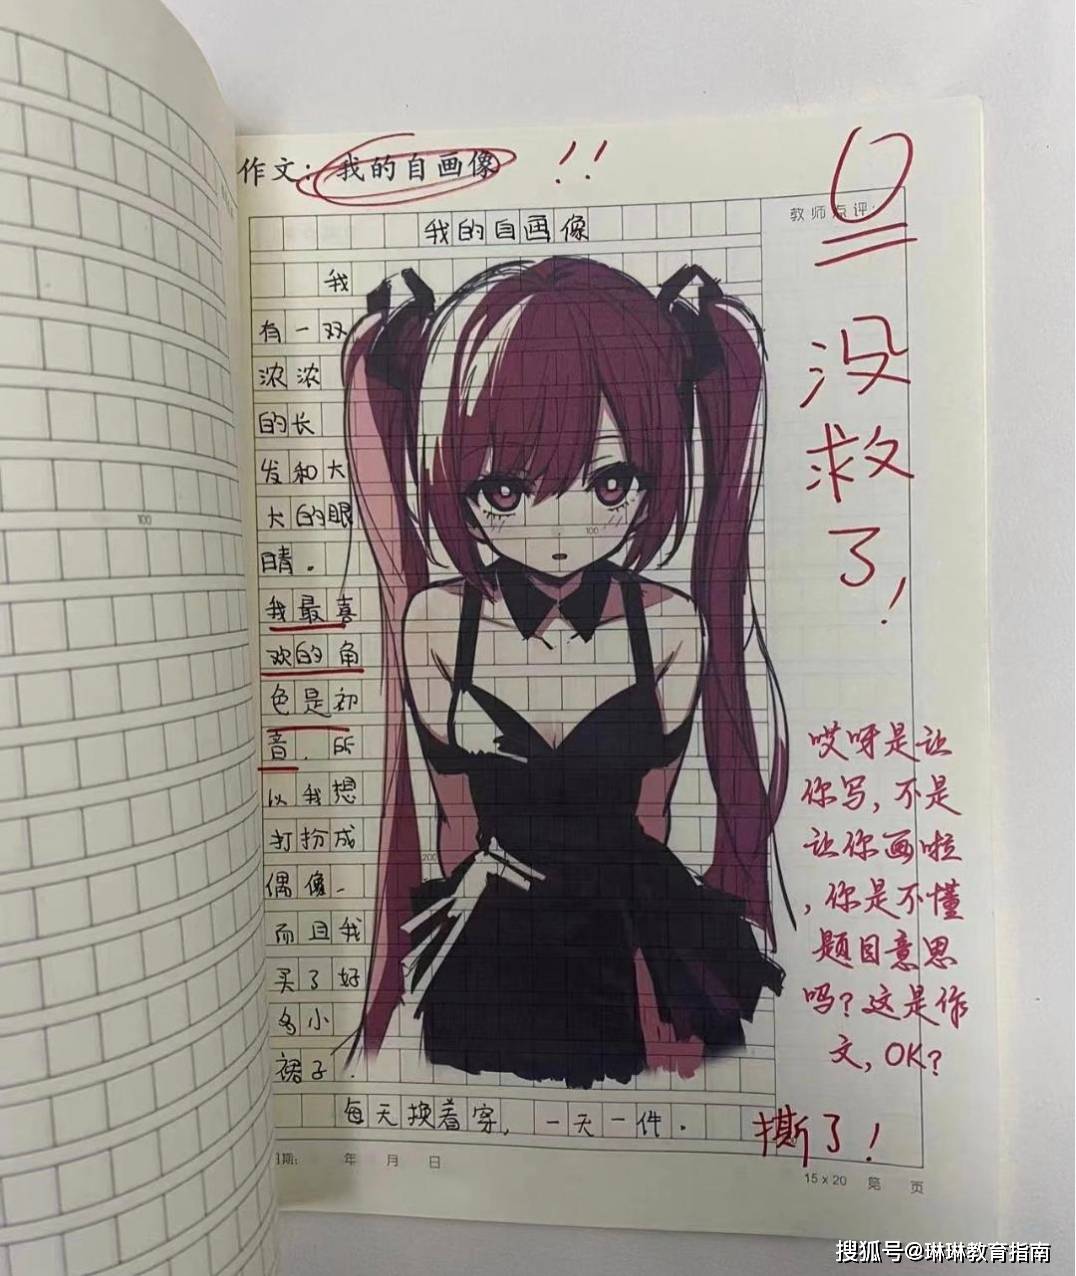 作文：我的自画像 !!
0
教师点评：
我的自画像
我
有一双
浓浓
的长
发和大
大的眼
睛．
我最喜
欢的角
色是初
音．所
以我想
打扮成
偶像．
而且我
买了好
多小
裙子．
每天换着穿，一天一件．
100
100
200
没
救
了！
哎呀是让
你写，不是
让你画啦
，你是不懂
题目意思
吗？这是作
文，OK？
撕了！
日期： 年 月 日
15×20 第 页
搜狐号@琳琳教育指南